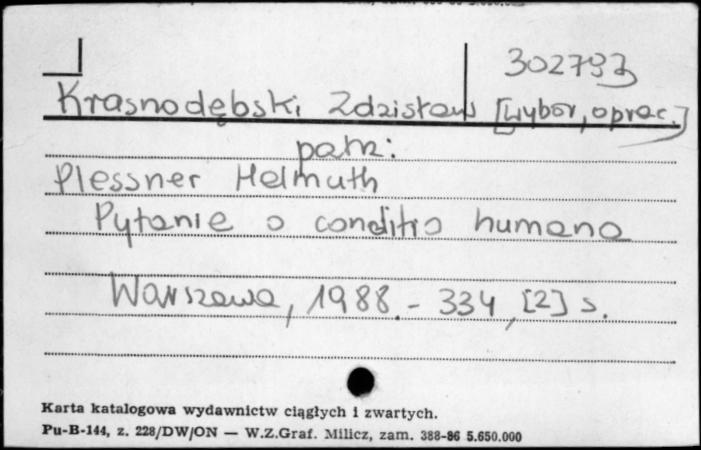 302793
Krasnodębski Zdzisław [wybór, oprac.]
patrz:
Plessner Helmuth
Pytanie o conditio humana
Warszawa, 1988. - 334, [2] s.
Karta katalogowa wydawnictw ciągłych i zwartych.
Pu-B-144, z. 228/DW/ON — W.Z.Graf. Milicz, zam. 388-86 5.650.000